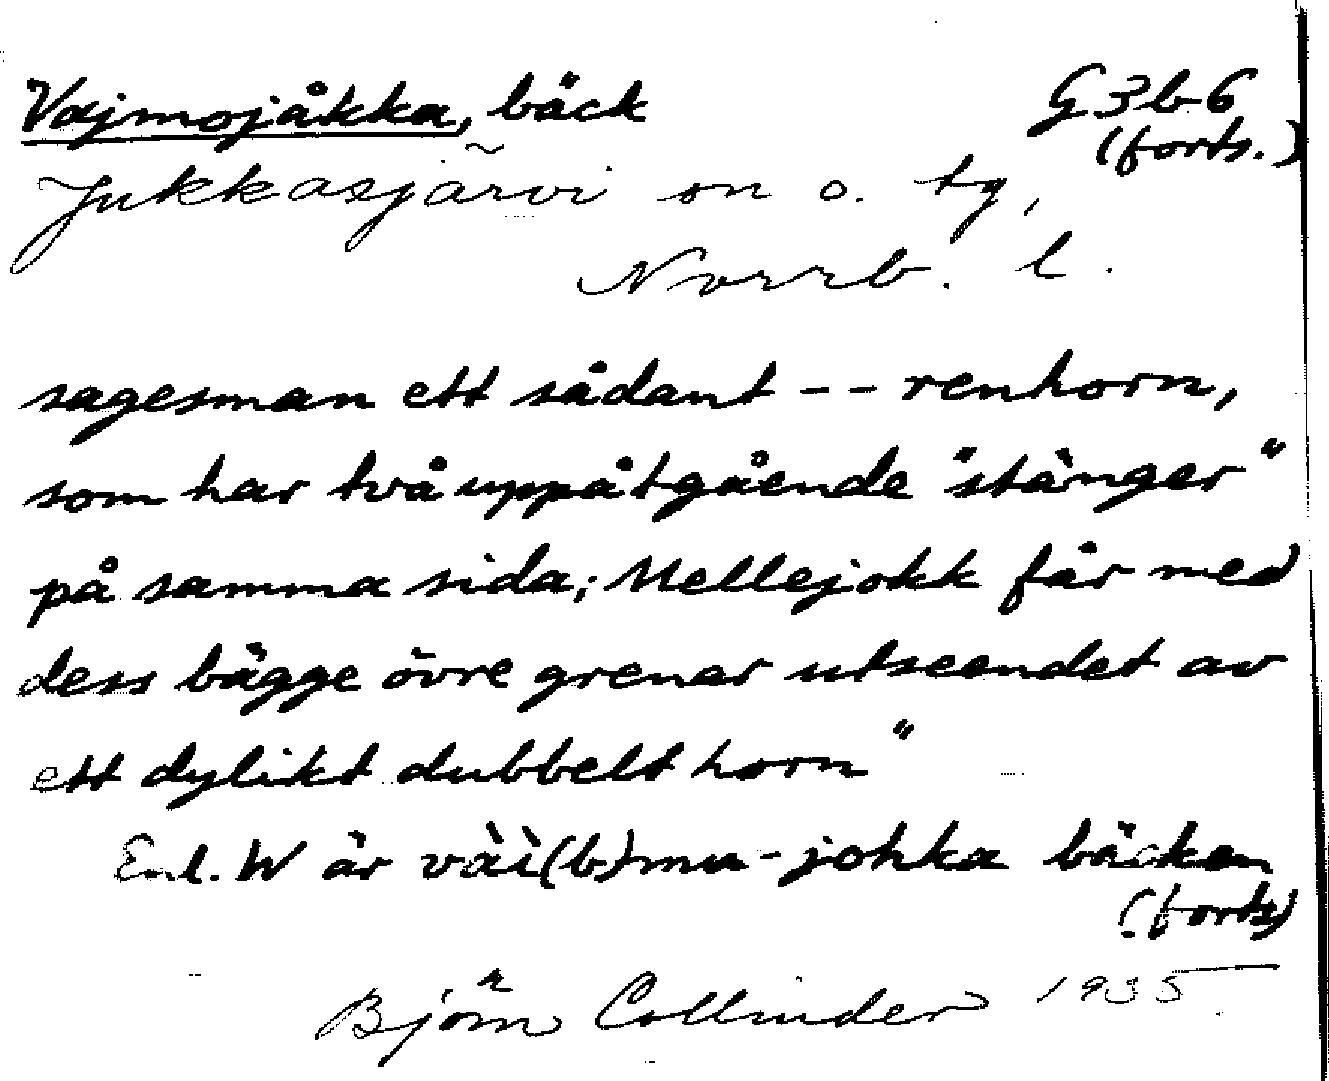 Vajmojåkka, bäck G3b6
(forts.)
Jukkasjärvi sn o. tg,
Norrb. l.
sagesman ett sådant -- renhorn,
som har två uppåtgående "stänger"
på samma sida; Mellejokk får med
dess bägge övre grenar utseendet av
ett dylikt dubbelt horn"
Enl. W är vàì(b)mu-johka bäcken
(forts)
Björn Collinder 1935